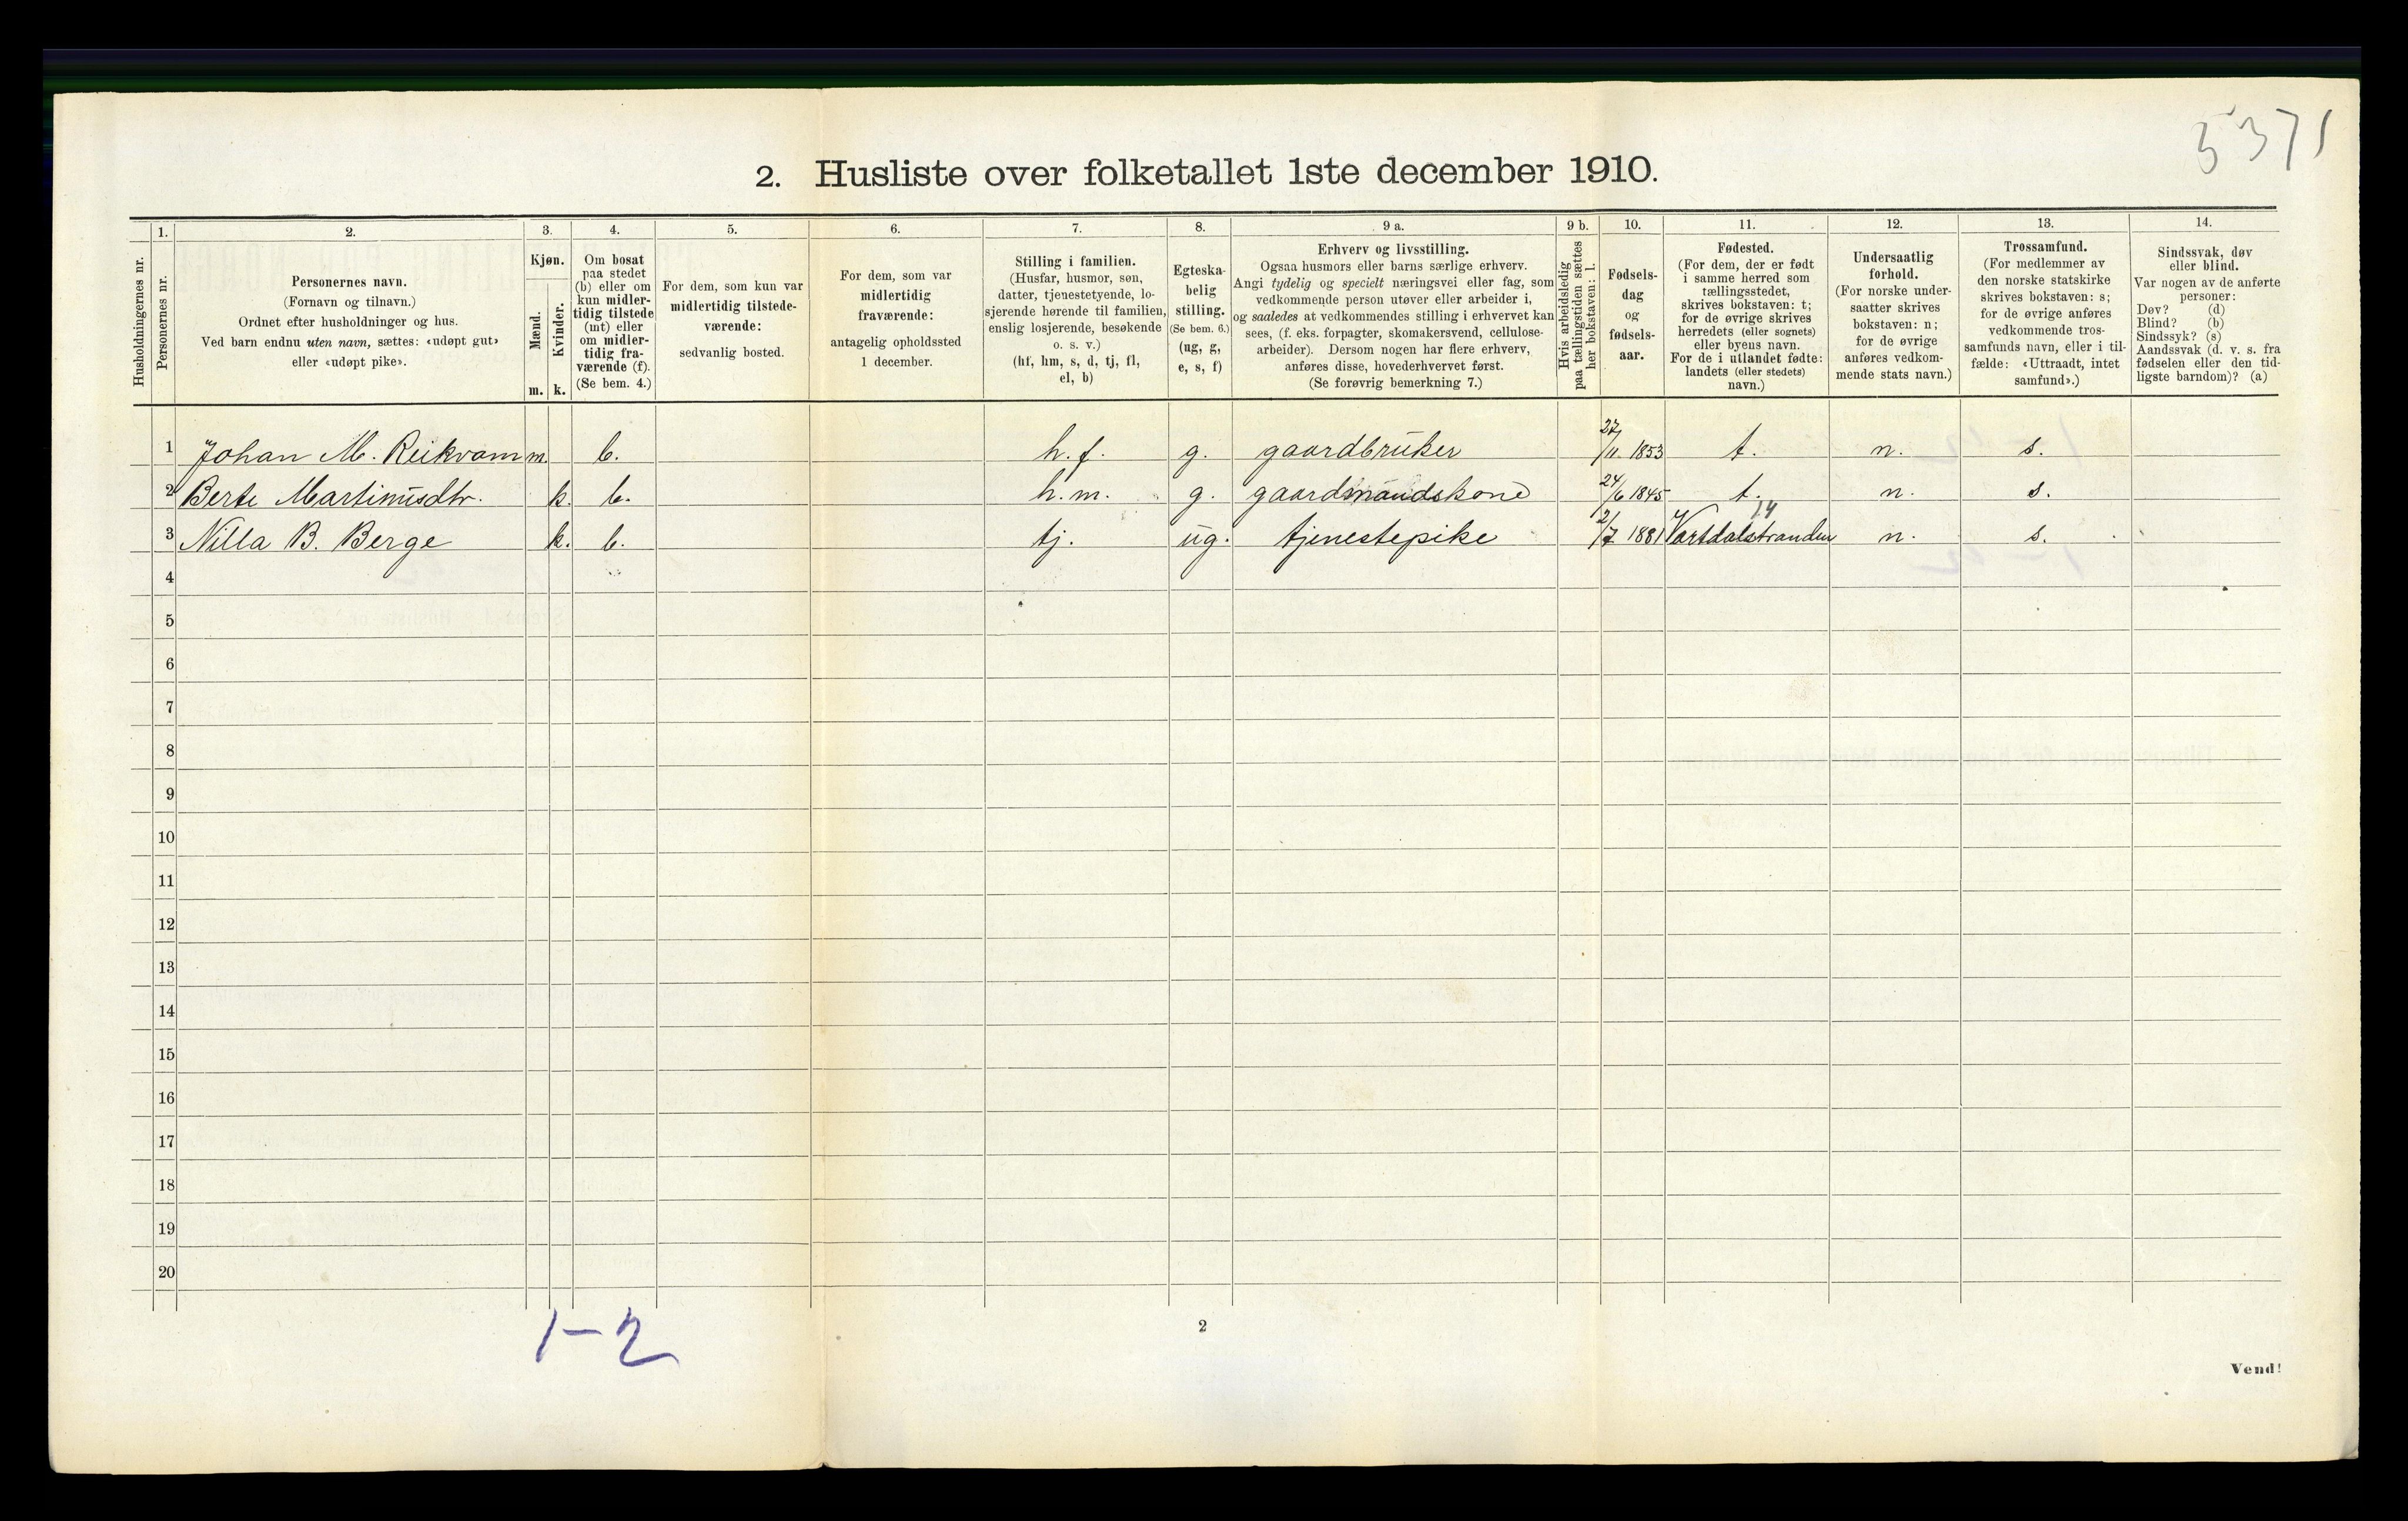 5371
2. Husliste over folketallet 1ste december 1910.
Husholdningernes nr.
1.
Personernes nr.
2.
Personernes navn.
(Fornavn og tilnavn.)
Ordnet efter husholdninger og hus.
Ved barn endnu uten navn, sættes: «udøpt gut»
eller «udøpt pike».
3.
Kjøn.
Mænd.
Kvinder.
m. k.
4.
Om bosat
paa stedet
(b) eller om
kun midler-
tidig tilstede
(mt) eller
om midler-
tidig fra-
værende (f).
(Se bem. 4.)
5.
For dem, som kun var
midlertidig tilstede-
værende:
sedvanlig bosted.
6.
For dem, som var
midlertidig
fraværende:
antagelig opholdssted
1 december.
7.
Stilling i familien.
(Husfar, husmor, søn,
datter, tjenestetyende, lo-
sjerende hørende til familien,
enslig losjerende, besøkende
o. s. v.)
(hf, hm, s, d, tj, fl,
el, b)
8.
Egteska-
belig
stilling.
(Se bem. 6.)
(ug, g,
e, s, f)
9 a.
Erhverv og livsstilling.
Ogsaa husmors eller barns særlige erhverv.
Angi tydelig og specielt næringsvei eller fag, som
vedkommende person utøver eller arbeider i,
og saaledes at vedkommendes stilling i erhvervet kan
sees, (f. eks. forpagter, skomakersvend, cellulose-
arbeider). Dersom nogen har flere erhverv,
anføres disse, hovederhvervet først.
(Se forøvrig bemerkning 7.)
9 b.
Hvis arbeidsledig
paa tællingstiden sættes
her bokstaven: l.
10.
Fødsels-
dag
og
fødsels-
aar.
11.
Fødested.
(For dem, der er født
i samme herred som
tællingsstedet,
skrives bokstaven: t;
for de øvrige skrives
herredets (eller sognets)
eller byens navn.
For de i utlandet fødte:
landets (eller stedets)
navn.)
12.
Undersaatlig
forhold.
(For norske under-
saatter skrives
bokstaven: n;
for de øvrige
anføres vedkom-
mende stats navn.)
13.
Trossamfund.
(For medlemmer av
den norske statskirke
skrives bokstaven: s;
for de øvrige anføres
vedkommende tros-
samfunds navn, eller i til-
fælde: «Uttraadt, intet
samfund».)
14.
Sindssvak, døv
eller blind.
Var nogen av de anførte
personer:
Døv? (d)
Blind? (b)
Sindssyk? (s)
Aandssvak (d. v. s. fra
fødselen eller den tid-
ligste barndom)? (a)
1 Johan M. Reikvam m. b. h.f. g. gaardbruker 27/11 1853 t. n. s.
2 Berte Martinusdtr. k. b. h.m. g. gaardmandskone 24/6 1845 t. n. s.
14
3 Nilla B. Berge k. b. tj. ug. tjenestepike 2/7 1881 Vartdalstranden n. s.
4
5
6
7
8
9
10
11
12
13
14
15
16
17
18
19
20
1-2
2
Vend!